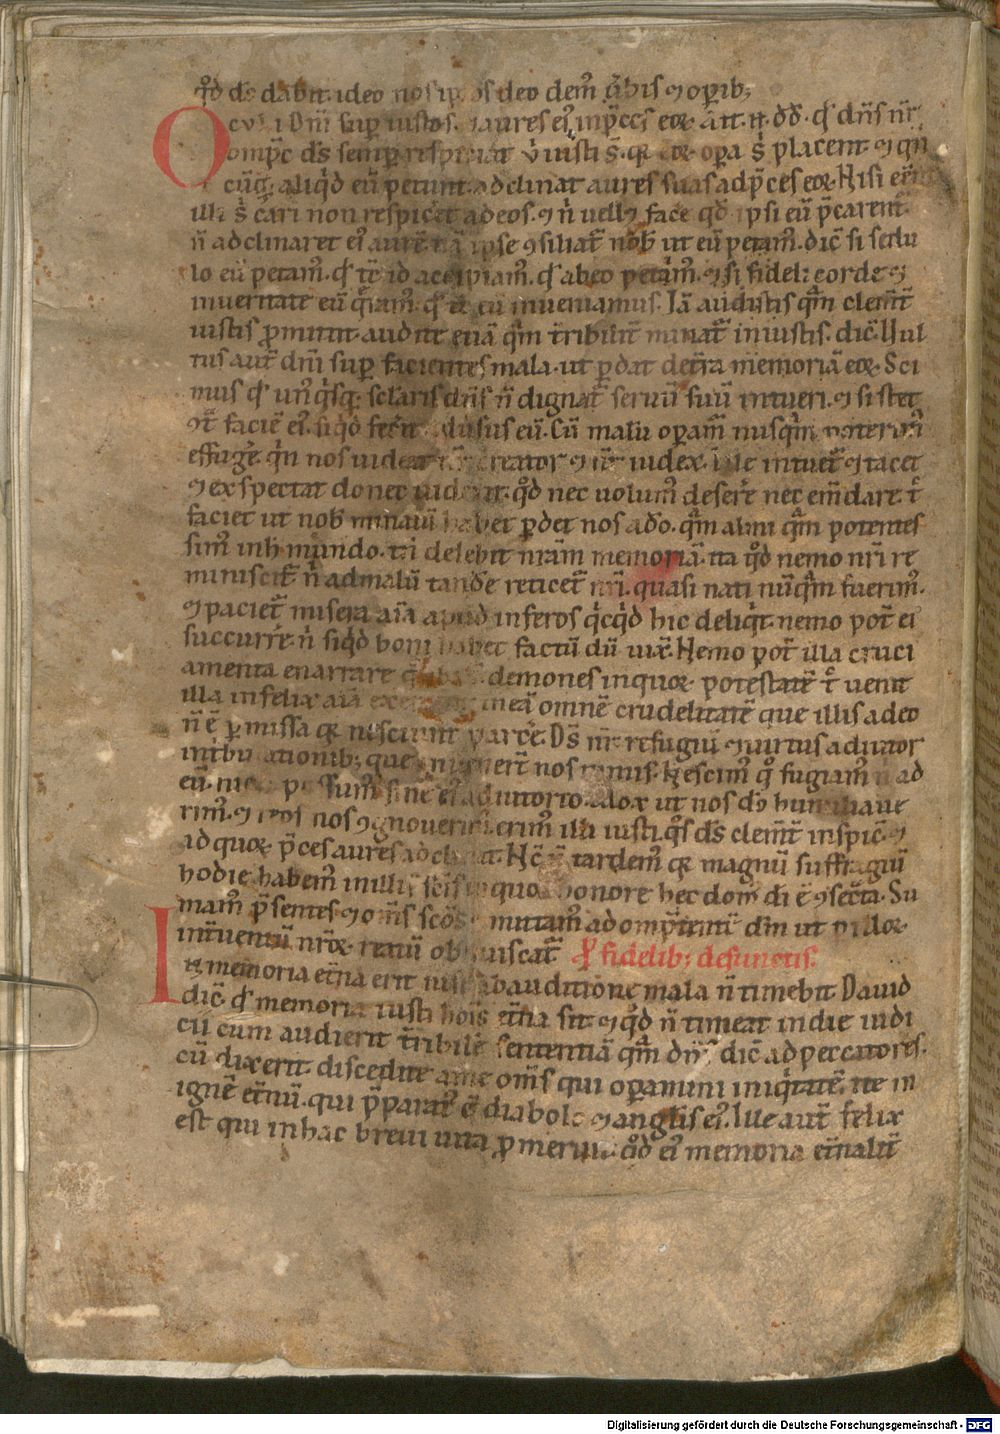 qd ds dabit. ideo nos ipsos deo dem uerbis ⁊ opib;
Oculi Dni sup iustos. ⁊ aures ei in pces eoꝝ
omps ds semp respiciat iusti s. ꝗ opa s placent ⁊
aliqd eu petunt. adclinat aures suas ad pces eoꝝ. Nisi eni
illi s cari non respicet ad eos. ⁊ n uell; face qd ipsi eu pcarent.
n adclinaret ei aure ipse ꝯsiliat nob ut eu petam. dic si sedu
lo eu petam. qd id accipiam. qd ab eo petam. ⁊ si fideli corde ⁊
in ueritate eu qram. qd eu inueniamus. Ia audistis qm clemt
iustis pmittit. audite etia qm tribilit minat iniustis. dic. Uul
tus aut dni sup facientes mala. ut pdat de tra memoria eoꝝ. Sci
mus qd unqsq; seclaris dns n dignat seruu suu intueri. ⁊ si stet
facie ei. siqd fecit adusus eu. Cu malu opam nusqm poterim
effuge. qn nos uideat creator ⁊ nr iudex. ille intuet ⁊ tacet
⁊ exspectat donec uiderit. qd nec uolum desere nec emdare. t
faciet ut nob minaui habet pdet nos a do. qm alini qm potentes
sim in h mundo. tn delebit nram memoria. ita qd nemo nri re
miniscit n ad malu tande reticet nri. quasi nati nuqm fuerim.
⁊ paciet misera aia apud inferos qcqd hic deliqt. nemo pot ei
succurre. n siqd boni habet factu du uix. Nemo pot illa cruci
amenta enarrare demones in quoꝝ potestate t uenit
illa infelix aia in ea omne crudelitate que illis a deo
n e pmissa ꝗ nesciunt parce. Ds nr refugiu ⁊ uirtus adiutor
in tribulationib; que inuenert nos nimis. Nescim quo fugiam n ad
eu. nec possum sine ei adiutorio. Mox ut nos do humiliaue
rim. ⁊ reos nos ꝯgnouerim. erim illi iusti qs ds clemt inspic. ⁊
ad quoꝝ pces aures adclinat. Hc n tardem ꝗ magnu suffragiu
hodie habem in illis scis in quoꝝ honore hec dom di e ꝯsecta. Su
mam psentes ⁊ oms scos mittam ad omptente dm ut p illoꝝ
interuentu nroꝝ reatu obliuiscat. P fidelib; defunctis.
In memoria etna erit iust ab auditione mala n timebit. Dauid
dic. qd memoria iusti hois etna sit ⁊ qd n timeat in die iudi
cii cum audierit tribile sententia qm dns dic ad peccatores.
cu dixerit. discedite a me oms qui opamini iniqtate. ite in
igne etnu. qui pparat e diabolo ⁊ anglis ei. Ille aut felix
est qui in hac breui uita pmeruit. qd ei memoria etnalit
Digitalisierung gefördert durch die Deutsche Forschungsgemeinschaft - DFG